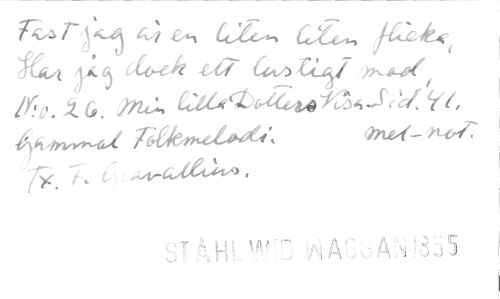 Fast jag är en liten liten flicka,
Har jag dock ett lustigt mod,
No. 26. Min lilla Dotters Visa. Sid. 41.
Gammal Folkmelodi. mel-not.
Tx. F. Gravallius.
STÅHL WID WAGGAN 1855